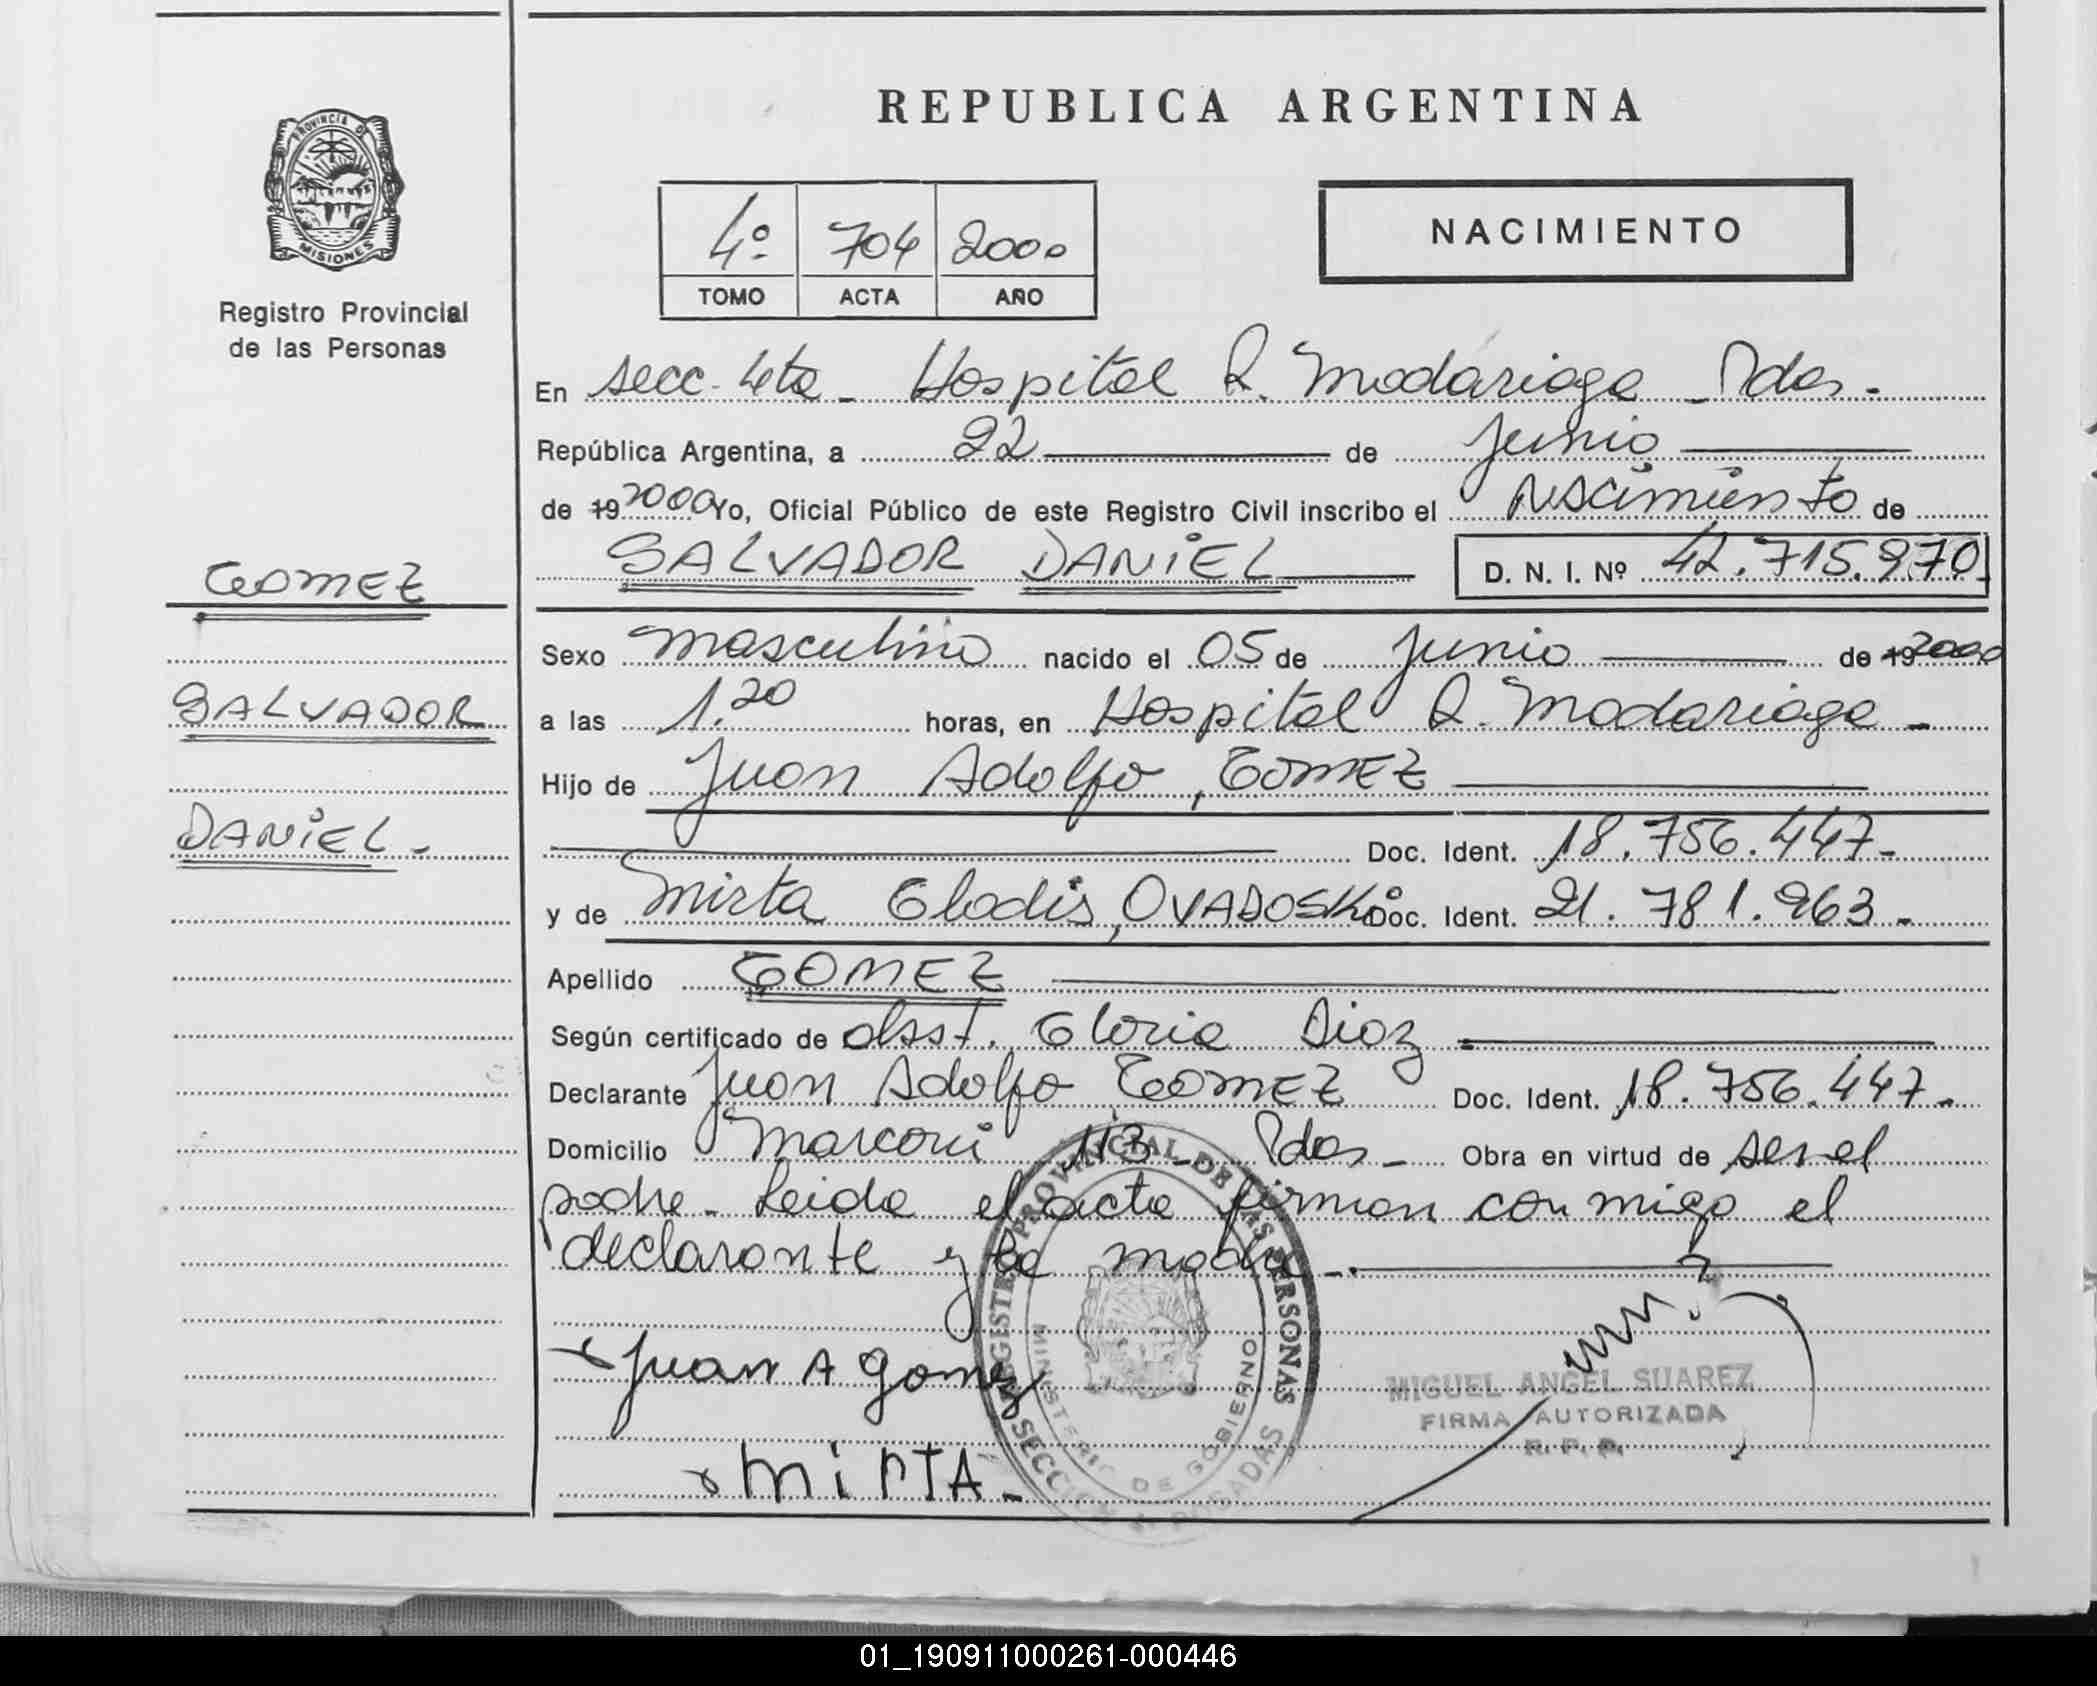 REPUBLICA ARGENTINA
PROVINCIA DE
MISIONES
Registro Provincial
de las Personas
4º 704 2000
TOMO ACTA AÑO
NACIMIENTO
En secc. 4ta - Hospital R. Madariaga - Pdas.
República Argentina, a 22 de Junio
de 19 2000 Yo, Oficial Público de este Registro Civil inscribo el nacimiento de
SALVADOR DANIEL D. N. I. Nº 42.715.970
GOMEZ
SALVADOR
DANIEL.-
Sexo masculino nacido el 05 de Junio de 19 2000
a las 1.20 horas, en Hospital R. Madariaga -
Hijo de Juan Adolfo, GOMEZ
Doc. Ident. 18.756.447-
y de Mirta Gladis, OVADOSKI Doc. Ident. 21.781.963.-
Apellido GOMEZ
Según certificado de obst. Gloria Diaz
Declarante Juan Adolfo GOMEZ Doc. Ident. 18.756.447.-
Domicilio Marconi 113 - Pdas - Obra en virtud de ser el
padre - Leida el acta firman conmigo el
declarante y la madre -.
Juan A Gomez
MIRTA -
REGISTRO PROVINCIAL DE LAS PERSONAS
MINISTERIO DE GOBIERNO
SECCION 4ª POSADAS
MIGUEL ANGEL SUAREZ
FIRMA AUTORIZADA
R. P. P.
01_190911000261-000446